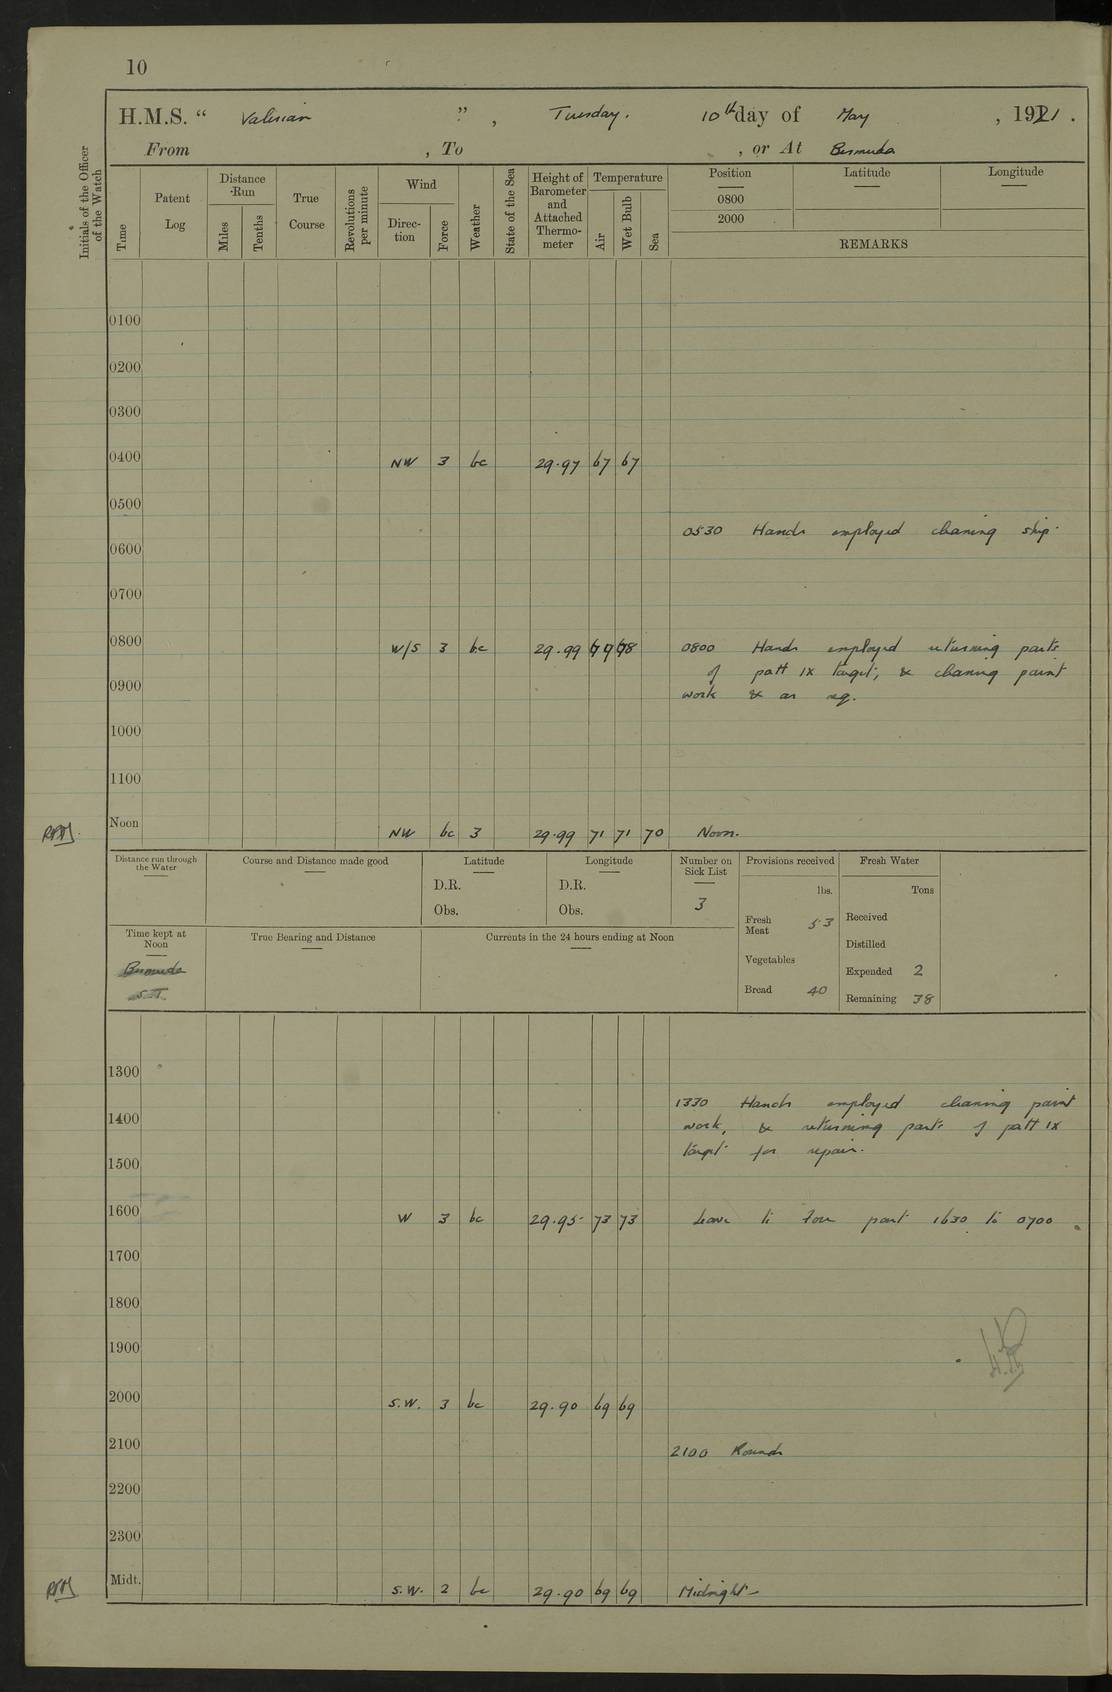 10
H.M.S. “ Valerian ” , Tuesday. 10th day of May , 1921 .
From , To , or At Bermuda
Initials of the Officer of the Watch
Time
Patent Log
Distance Run
Miles
Tenths
True Course
Revolutions per minute
Wind
Direction
Force
Weather
State of the Sea
Height of Barometer and Attached Thermometer
Temperature
Air
Wet Bulb
Sea
Position
0800
2000
Latitude
Longitude
REMARKS
0100
0200
0300
0400 NW 3 bc 29.97 67 67
0500
0530 Hands employed cleaning ship.
0600
0700
0800 W/S 3 bc 29.99 0800 Hands employed returning parts
of patt IX target, & cleaning paint
0900
work & as req.
1000
1100
Noon NW bc 3 29.99 71 71 70 Noon.
Distance run through the Water
Course and Distance made good
Latitude
D.R.
Obs.
Longitude
D.R.
Obs.
Number on Sick List
3
Provisions received
lbs.
Fresh Meat 53
Vegetables
Bread 40
Fresh Water
Tons
Received
Distilled
Expended 2
Remaining 38
Time kept at Noon
Bermuda
S.T.
True Bearing and Distance
Currents in the 24 hours ending at Noon
1300
1330 Hands employed cleaning paint
1400
work, & returning parts of patt IX
target for repair.
1500
1600 W 3 bc 29.95 73 73 Leave to four part 1630 to 0700
1700
1800
1900
2000 S.W. 3 bc 29.90 69 69
2100 2100 Rounds
2200
2300
Midt. S.W. 2 bc 29.90 69 69 Midnight